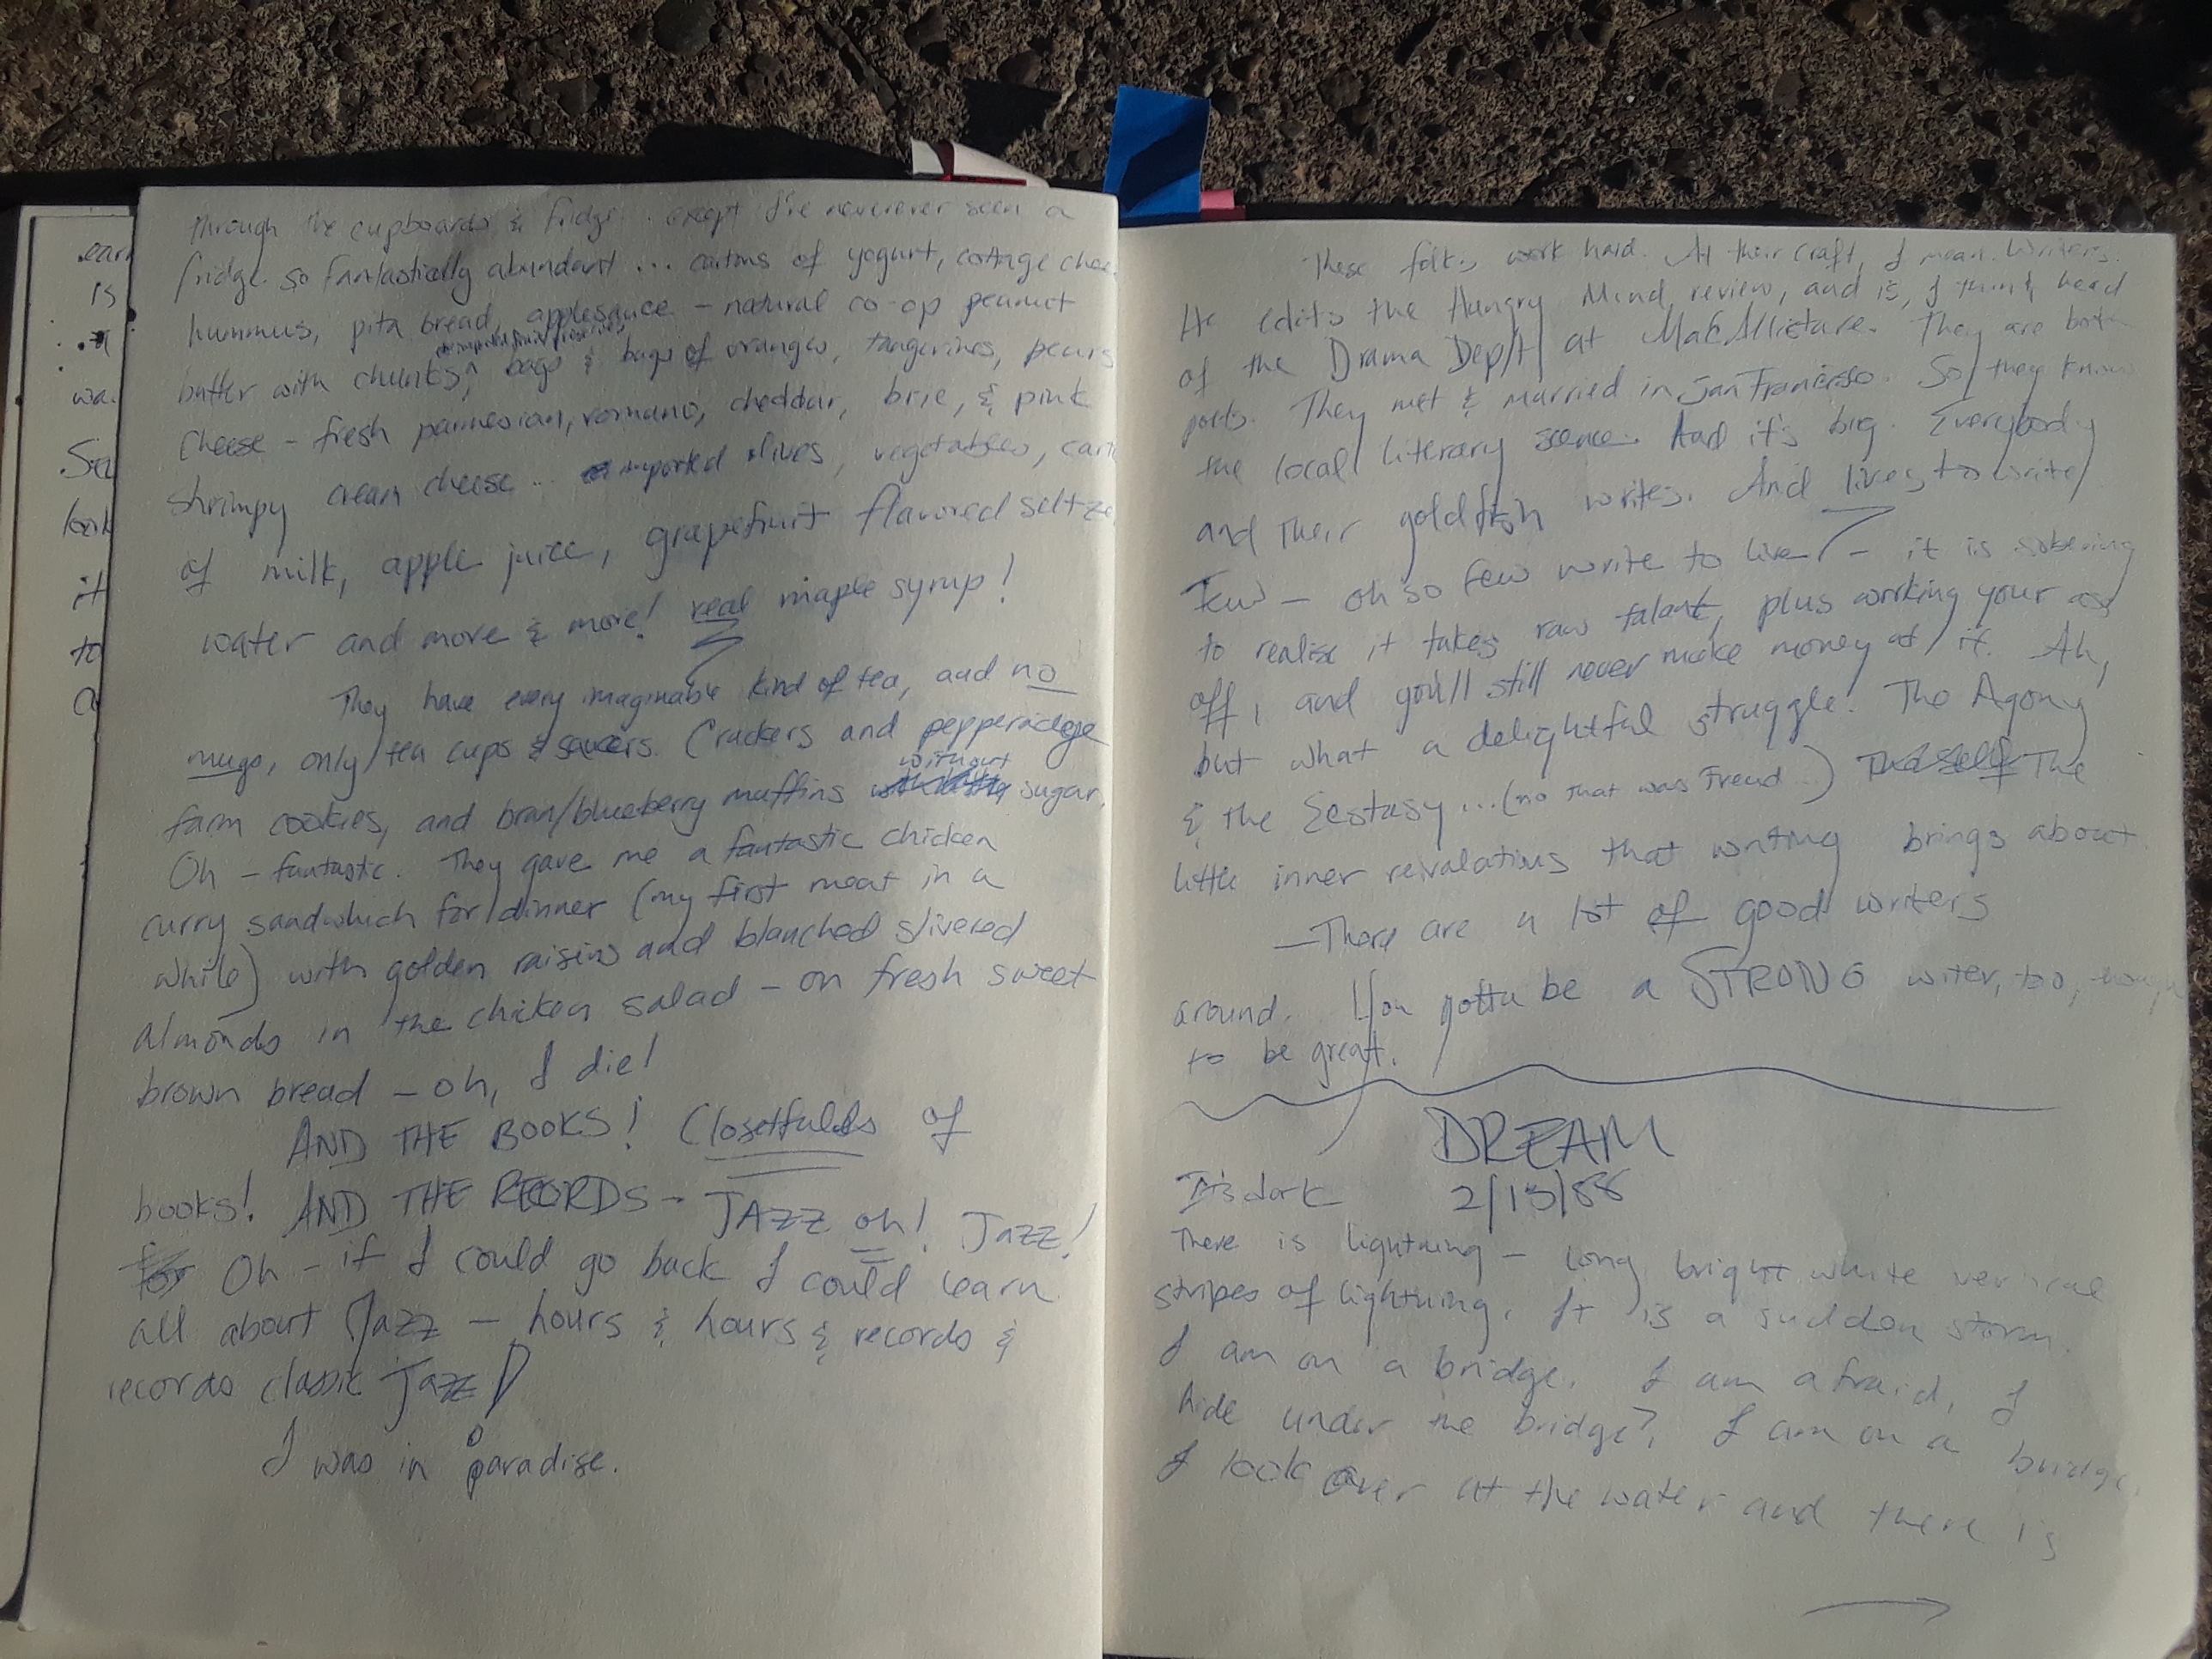 through the cupboards & fridge.. except I've neverever seen a
fridge so fantastically abundant ... cartons of yogurt, cottage chee
hummus, pita bread, applesauce – natural co-op peanut
butter with chunks, bags & bags of oranges, tangerines, pears
Cheese – fresh parmesian, romano, cheddar, brie, & pink
shrimpy cream cheese... imported olives, vegetables, carto
of milk, apple juice, grapefruit flavored seltze
water and more & more! real maple syrup!
They have every imaginable kind of tea, and no
mugs, only tea cups & saucers. Crackers and pepperidge
farm cookies, and bran/blueberry muffins without sugar.
Oh – fantastic. They gave me a fantastic chicken
curry sandwhich for dinner (my first meat in a
while) with golden raisins and blanched slivered
almonds in the chicken salad – on fresh sweet
brown bread – oh, I die!
AND THE BOOKS! Closetfulls of
books! AND THE RECORDS – JAZZ oh! Jazz!
for Oh – if I could go back I could learn
all about Jazz – hours & hours & records &
records classic Jazz!
I was in paradise.
These folks work hard. At their craft, I mean. Writers.
He edits the Hungry Mind review, and is, I think, head
of the Drama Dep/t at MacAllistare. They are both
poets. They met & married in San Francisco. So they know
the local literary scence. And it's big. Everybody
and their goldfish writes. And lives to write
Few – oh so few write to live – it is sobering
to realise it takes raw talent, plus working your ass
off, and you'll still never make money at it. Ah,
but what a delightful struggle! The Agony
& the Ecstasy ... (no that was Freud ..) The self The
little inner revalations that writing brings about.
– There are a lot of good writers
around. You gotta be a STRONG writer, too, though
to be great.
DREAM
It's dark 2/13/88
There is lightning – long bright white vertical
stripes of lightning. It is a sudden storm.
I am on a bridge. I am afraid, I
hide under the bridge?, I am on a bridge.
I look over at the water and there is